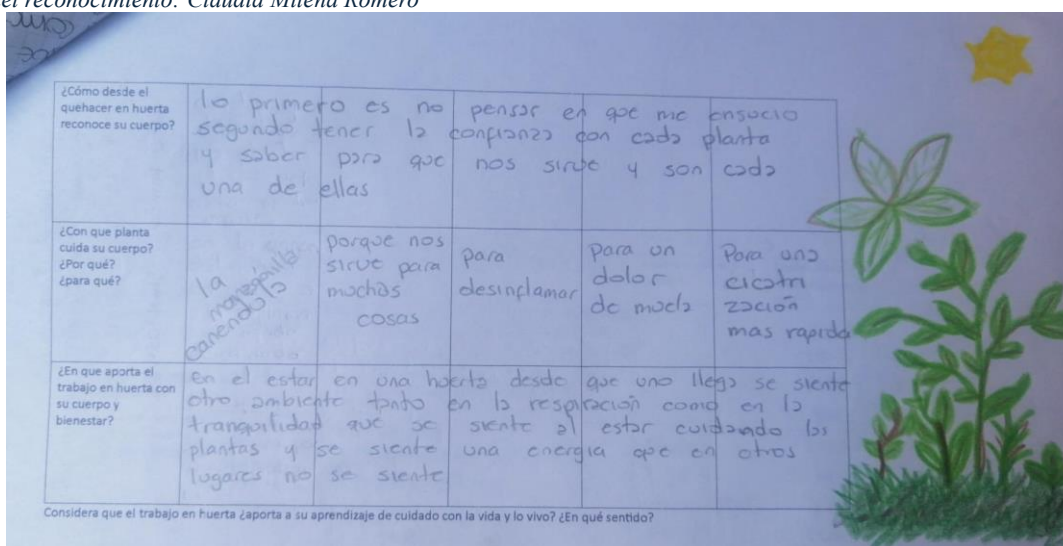 el reconocimiento. Claudia Milena Romero
¿Cómo desde el
quehacer en huerta
reconoce su cuerpo?
lo primero es no pensar en que me ensucio
segundo tener la confianza con cada planta
y saber para que nos sirve y son cada
una de ellas
¿Con que planta
cuida su cuerpo?
¿Por qué?
¿para qué?
la
canendola
porque nos
sirve para
muchas
cosas
para
desinflamar
Para un
dolor
de muela
Para una
cicatri
zación
mas rapida
¿En que aporta el
trabajo en huerta con
su cuerpo y
bienestar?
en el estar en una huerta desde que uno llega se siente
otro ambiente tanto en la respiración como en la
tranquilidad que se siente al estar cuidando las
plantas y se siente una energia que en otros
lugares no se siente
Considera que el trabajo en huerta ¿aporta a su aprendizaje de cuidado con la vida y lo vivo? ¿En qué sentido?